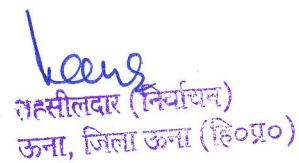 तहसीलदार (निर्वाचन)
ऊना, जिला ऊना (हि०प्र०)